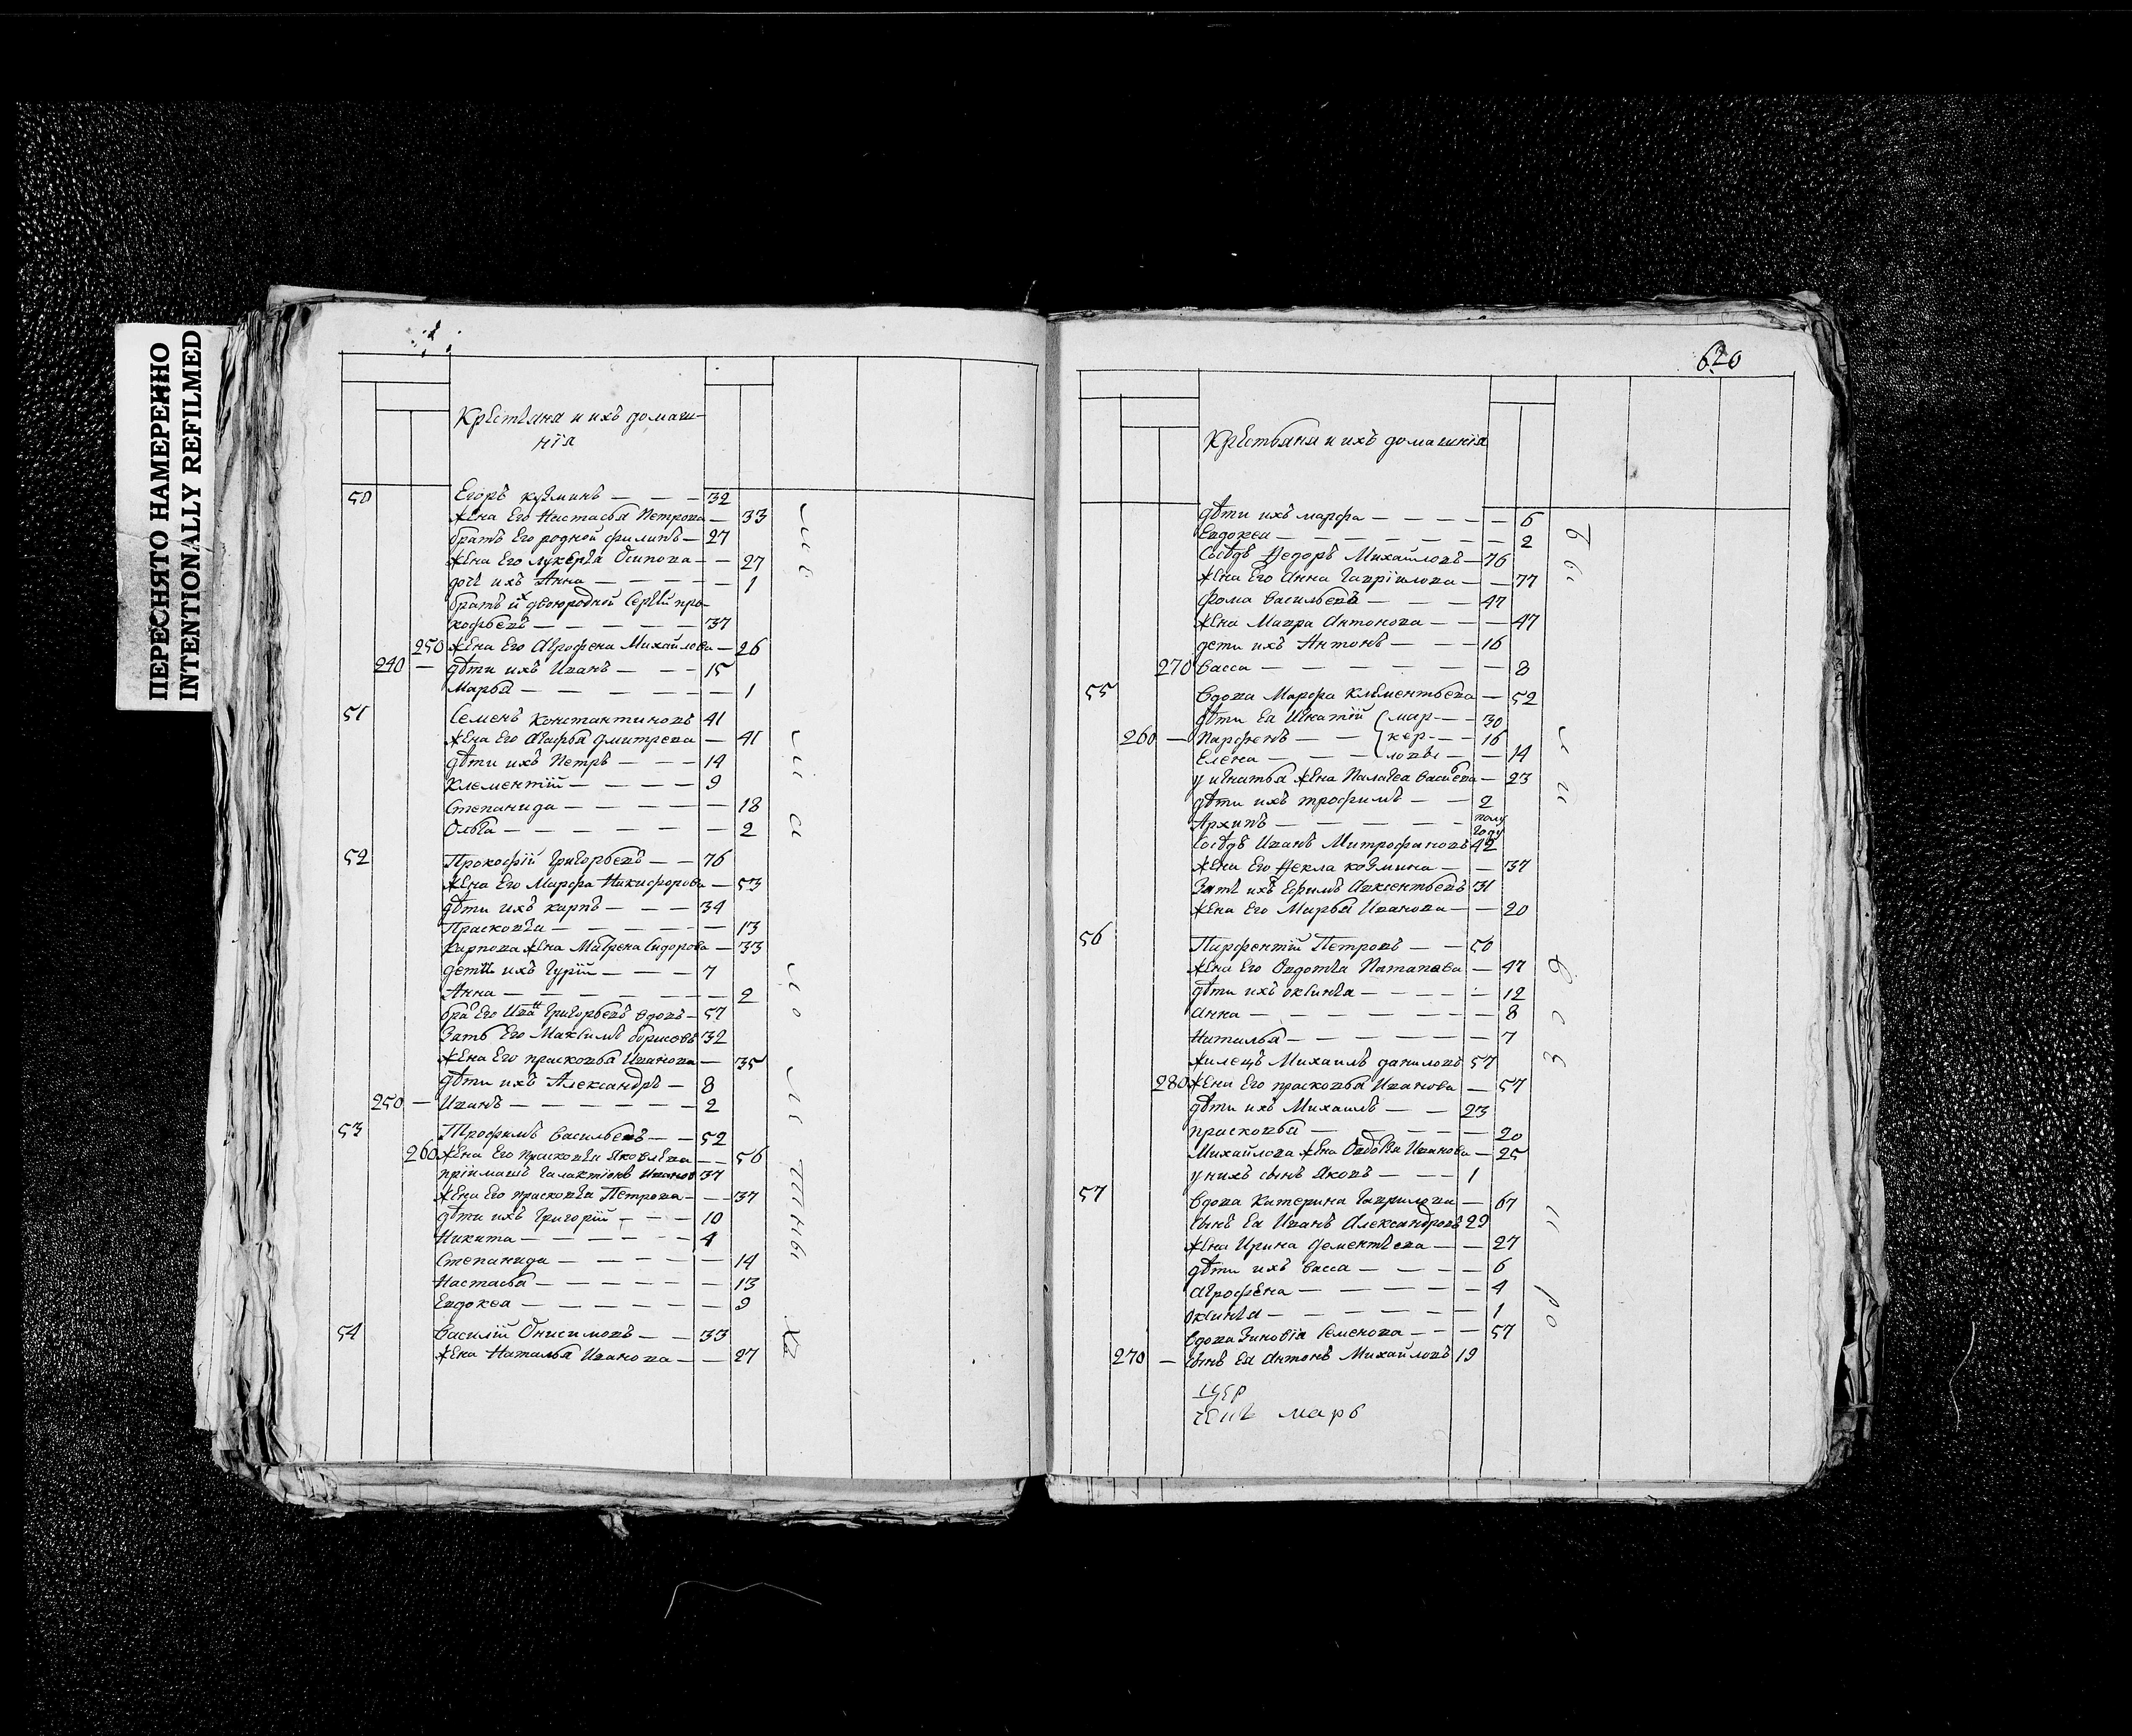 ПЕРЕСНЯТО НАМЕРЕННО
INTENTIONALLY REFILMED
Крестьяня и ихъ домаш-
нія
50 Егоръ кузминъ — — — 32
жена Его Настасья Петрова — 33
братъ Его родной филипъ — 27
жена Его лукерья Осипова — — 27
дочь ихъ Анна — — — — — 1
братъ ихъ двоюродной Сергѣй про-
кофьевъ — — — — — 37
250 жена Его Агрофена Михайлова — 26
240 — дѣти ихъ Иванъ — — — 15
Марья — — — — — — 1
51 Семенъ константиновъ 41
жена Его Агафья дмитрева — 41
дѣти ихъ Петръ — — — 14
Клементій — — — — 9
Степанида — — — — — 18
Ольга — — — — — — 2
52 Прокофій григорьевъ — — 76
жена Его Марфа Никифорова — 53
дѣти ихъ карпъ — — — 34
Прасковья — — — — — 13
карпова жена Матрена Сидорова — 33
дети ихъ гурій — — — 7
Анна — — — — — — — 2
бра Его Иванъ григорьевъ вдовъ — 57
Зять Его Максимъ борисовъ 32
жена Его прасковья Иванова — 35
дѣти ихъ Александръ — 8
250 — Иванъ — — — — — — 2
53 Трофимъ васильевъ — — 52
260 жена Его прасковья яковлева — — 56
пріимашъ галактіонъ Иванов 37
жена Его прасковья Петрова — — 37
дѣти ихъ григорій — — — 10
Никита — — — — — — 4
Степанида — — — — — 14
Настасья — — — — — — 13
Евдокея — — — — — — 9
54 василій Онисимовъ — — 33
жена Наталья Иванова — — 27
620
Крестьяня и ихъ домашнія
дѣти ихъ марфа — — — — — 6
Евдокея — — — — — — — 2
Сосѣдъ Федоръ Михайловъ — 76
жена Его Анна гаврилова — — 77
фома васильевъ — — — 47
жена Мавра Антонова — — — 47
дети ихъ Антонъ — — — 16
270 васса — — — — — — — 8
55 вдова Марфа климентьева — 52
дѣти Ея Игнатій (мар — — 30
260 — Парфенъ — — кер — — 16
Елена — — — ловы — — 14
у игнатья жена Палагея васильева — 23
дѣти ихъ трофимъ — — 2
Архипъ — — — — — полу
году
Сосѣдъ Иванъ Митрофановъ 42
жена Его Фекла козмина — — 37
Зять ихъ Ефимъ Авксентьевъ 31
жена Его Марья Иванова — — 20
56 Парфентій Петровъ — — 50
жена Его Овдотья Патапова — 47
дѣти ихъ оксинья — — — — 12
анна — — — — — — — 8
Наталья — — — — — — 7
жилецъ Михаилъ даниловъ 57
280 жена Его прасковья Иванова — 57
дѣти ихъ Михаилъ — — 23
прасковья — — — — — 20
Михайлова жена Овдотья Иванова — 25
у нихъ сынъ яковъ — — — 1
57 вдова Катерина гаврилова — 67
сынъ Ея Иванъ Александровъ 29
жена Ирина дементьева — — 27
дѣти ихъ васса — — — — 6
агрофена — — — — — — 4
оксинья — — — — — — 1
вдова Зиновія Семенова — — — 57
270 — сынъ Ея Антонъ Михайловъ 19